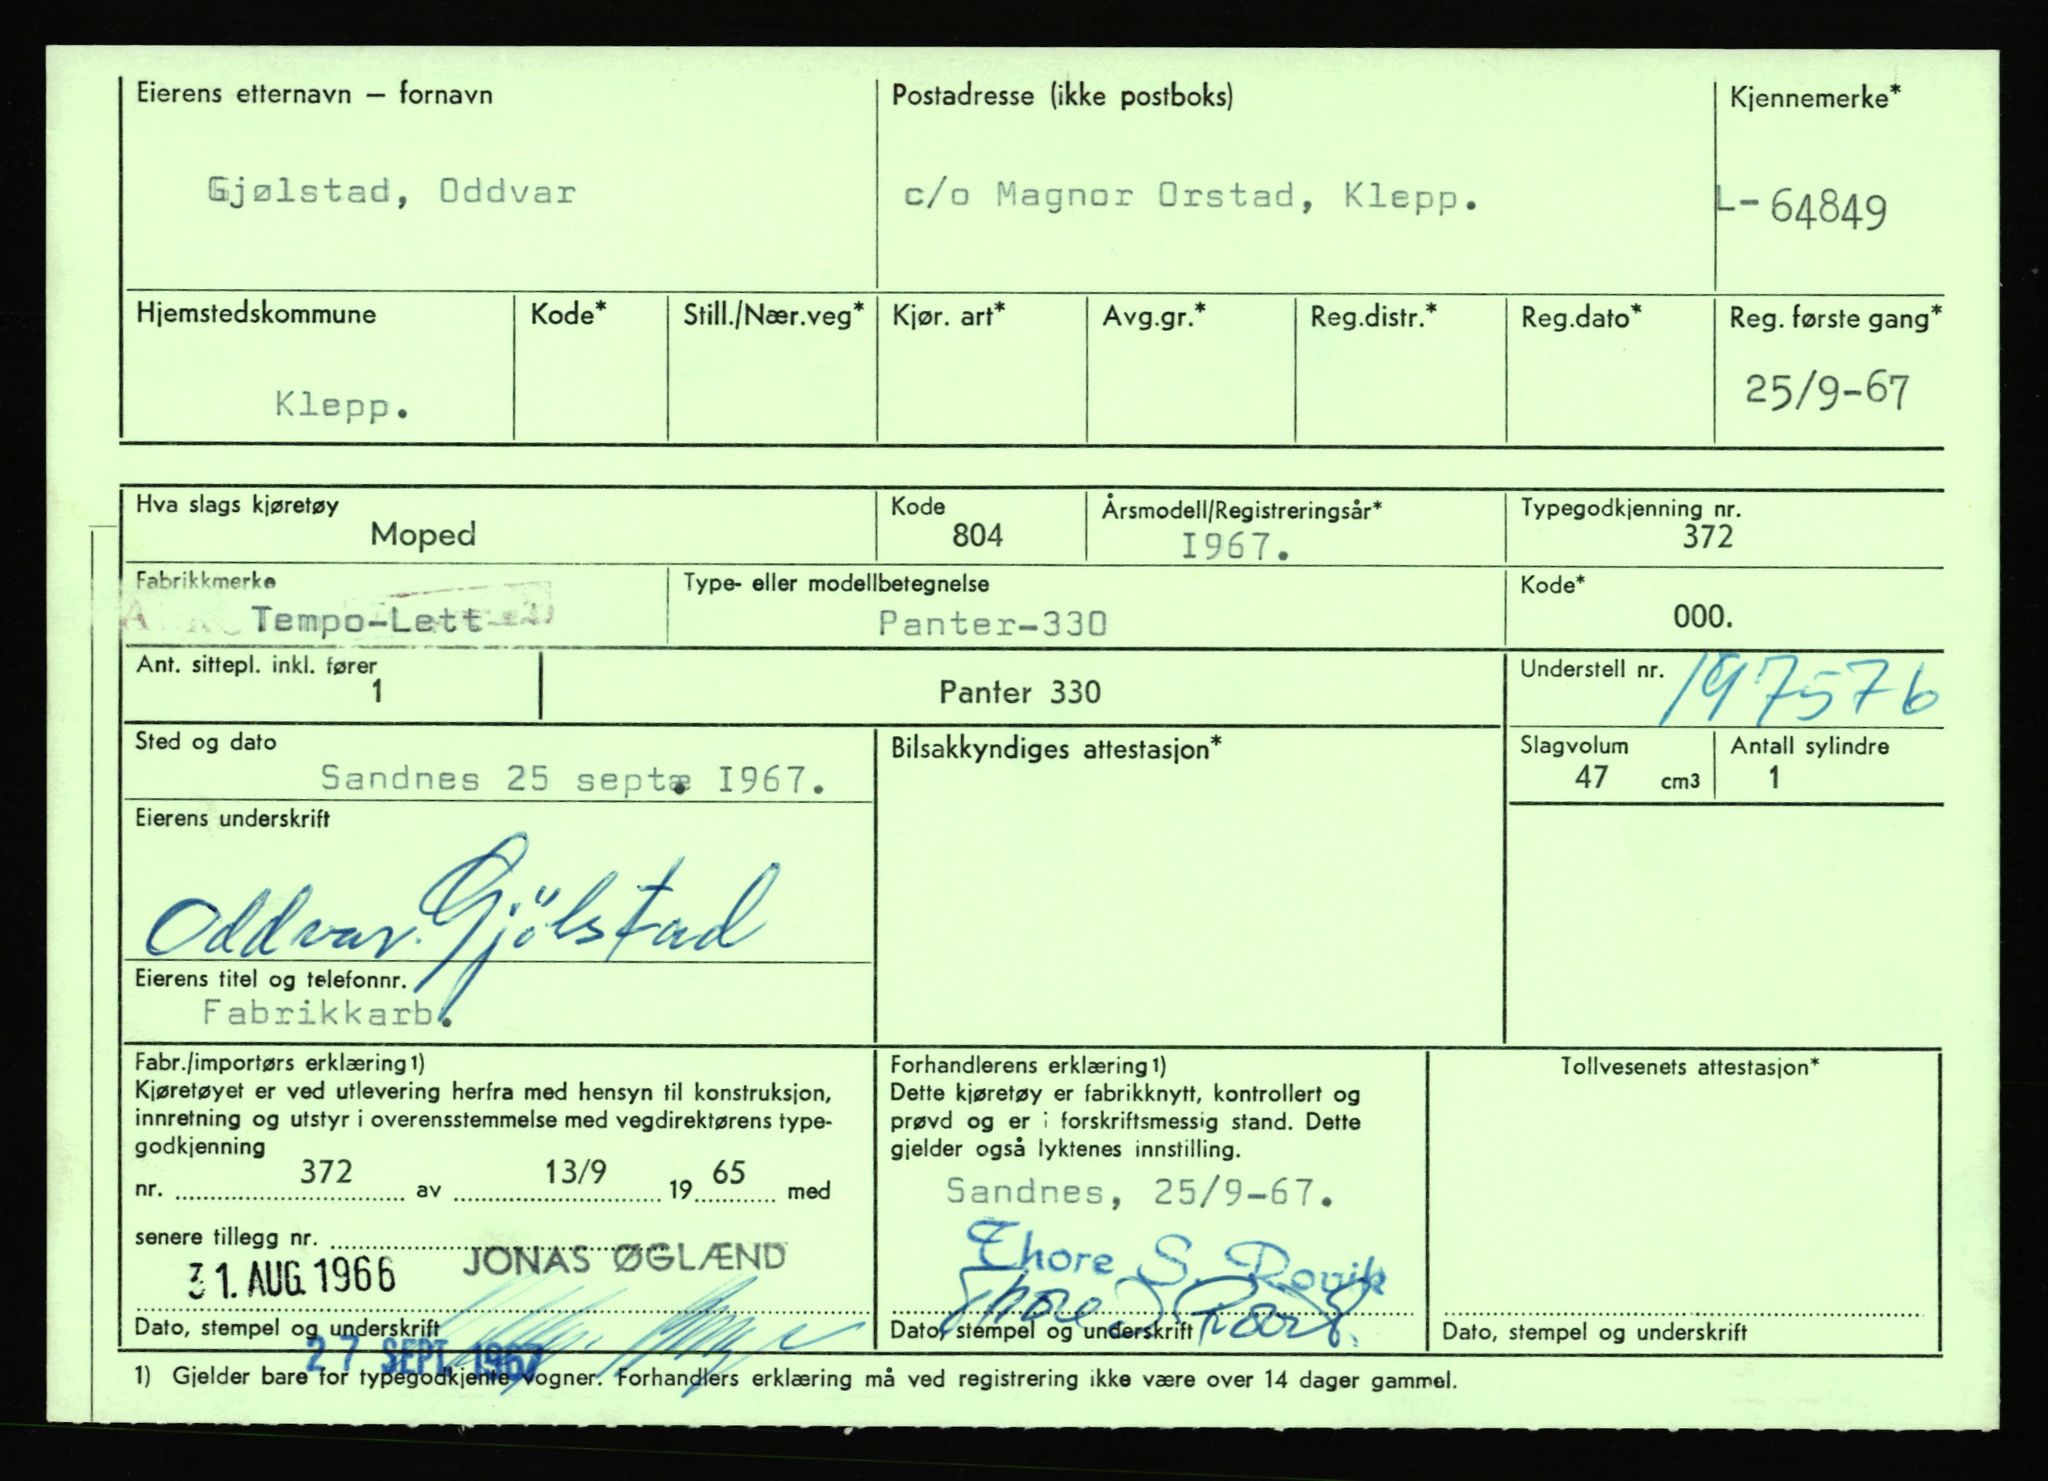 Eierens etternavn — fornavn
Postadresse (ikke postboks)
Kjennemerke*
Gjølstad, Oddvar
c/o Magnor Orstad, Klepp.
L-64849
Hjemstedskommune
Kode*
Still./Nær.veg*
Kjør. art*
Avg.gr.*
Reg.distr.*
Reg.dato*
Reg. første gang*
Klepp.
25/9-67
Hva slags kjøretøy
Moped
Kode
804
Årsmodell/Registreringsår*
I967.
Typegodkjenning nr.
372
Fabrikkmerke
Tempo-Lett
Type- eller modellbetegnelse
Panter-330
Kode*
000.
Ant. sittepl. inkl. fører
1
Panter 330
Understell nr.
197576
Sted og dato
Sandnes 25 sept. I967.
Bilsakkyndiges attestasjon*
Slagvolum
47 cm3
Antall sylindre
1
Eierens underskrift
Oddvar Gjölstad
Eierens titel og telefonnr.
Fabrikkarb.
Fabr./importørs erklæring 1)
Kjøretøyet er ved utlevering herfra med hensyn til konstruksjon,
innretning og utstyr i overensstemmelse med vegdirektørens type-
godkjenning
nr. 372 av 13/9 1965 med
senere tillegg nr.
JONAS ØGLÆND
31. AUG. 1966
Dato, stempel og underskrift
27 SEPT. 1967
Forhandlerens erklæring 1)
Dette kjøretøy er fabrikknytt, kontrollert og
prøvd og er i forskriftsmessig stand. Dette
gjelder også lyktenes innstilling.
Sandnes, 25/9-67.
Thore S. Rovik
Dato, stempel og underskrift
Tollvesenets attestasjon*
Dato, stempel og underskrift
1) Gjelder bare for typegodkjente vogner. Forhandlers erklæring må ved registrering ikke være over 14 dager gammel.